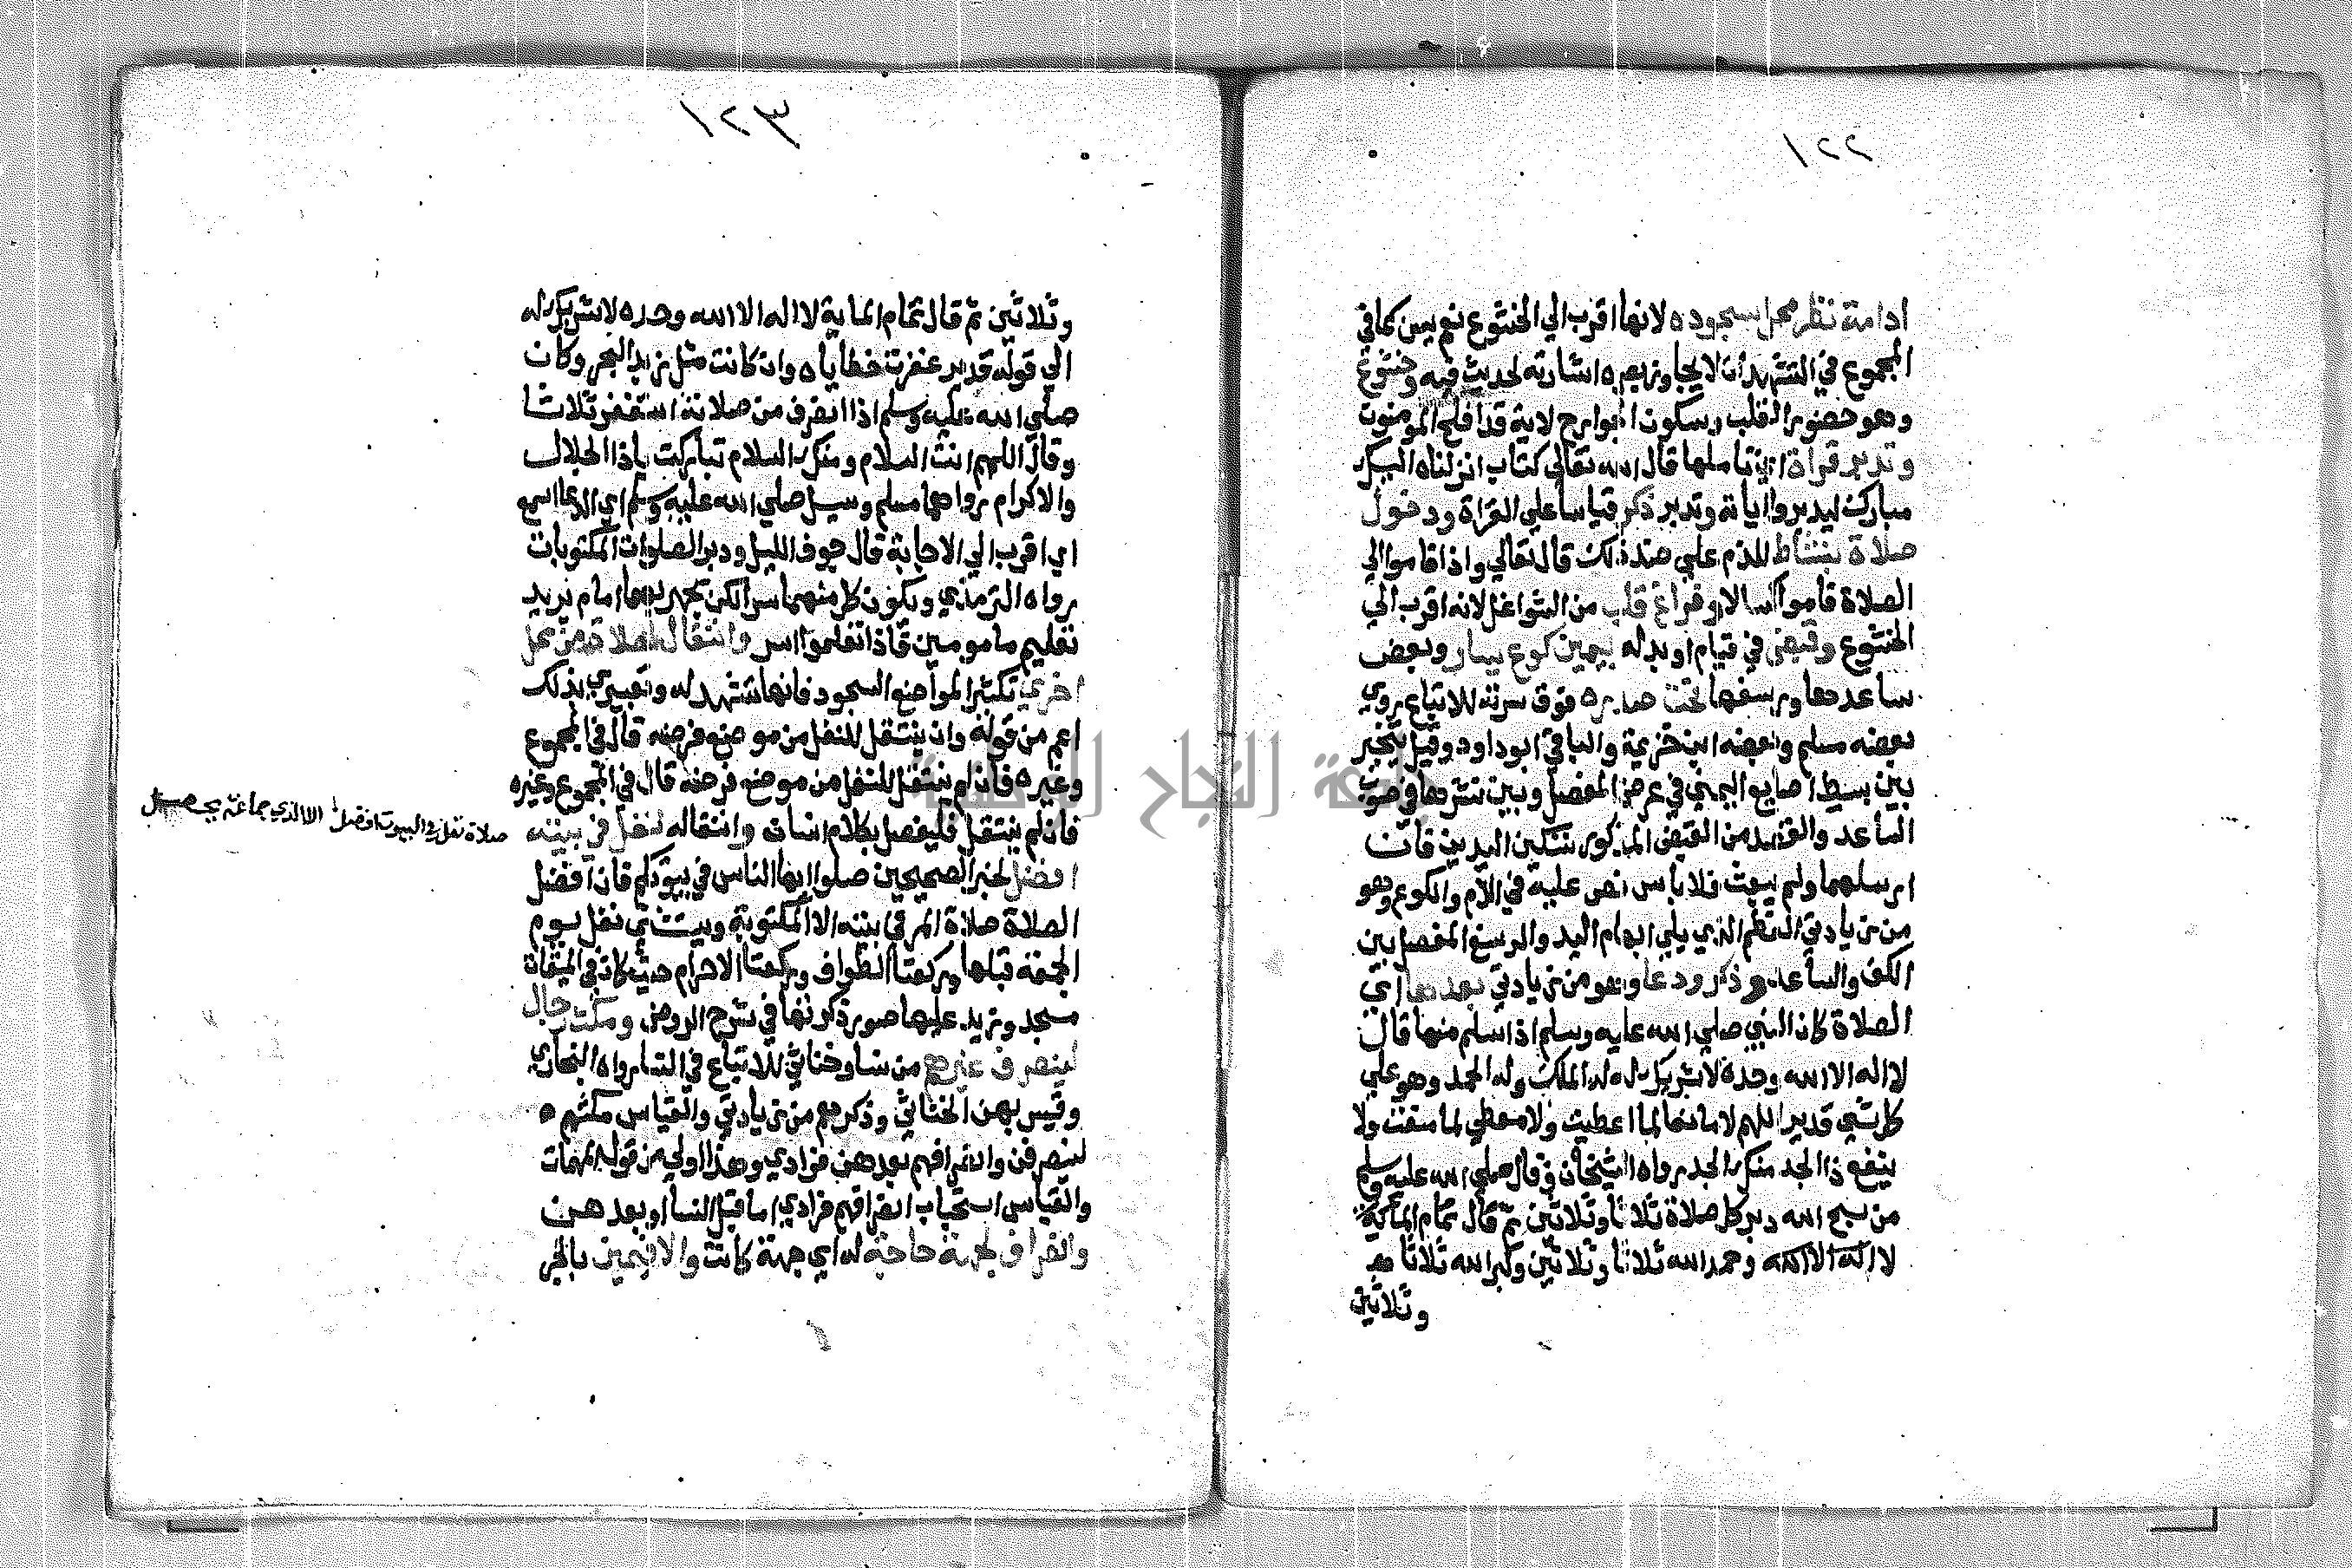 ١٢٢
ادامة نظر محل سجوده لانها اقرب الي الخشوع نعم يسن كما في
المجموع في التشهد ان لا يجاوز بصره اشارته لحديث فيه وخشوع
وهو حضور القلب وسكون الجوارح لاية قد افلح المومنون
وتدبر قراة اي تاملها قال الله تعالي كتاب انزلناه اليك
مبارك ليدبروا اياته وتدبر ذكر قياسا علي القراة ودخول
صلاة بنشاط للذم علي ضد ذلك قال تعالي واذا قاموا الي
الصلاة قاموا كسالا وفراغ قلب من الشواغل لانه اقرب الي
الخشوع وقبض في قيام او بدله بيمين كوع يسار وبعض
ساعدها ورسغها تحت صدره فوق سرته للاتباع روي
بعضه مسلم وبعضه ابن خزيمة والباقي ابو داود وقيل يتخير
بين بسط اصابع اليمني في عرض المفصل وبين نشرها في صوب
الساعد والقصد من القبض المذكور تسكين اليدين فان
ارسلهما ولم يعبث فلا باس نص عليه في الام والكوع وهو
من زيادتي العظم الذي يلي ابهام اليد والرسغ المفصل بين
الكف والساعد وذكر ودعا وهو من زيادتي بعدها اي
الصلاة كان النبي صلي الله عليه وسلم اذا سلم منها قال
لا اله الا الله وحده لا شريك له له الملك وله الحمد وهو علي
كل شي قدير اللهم لا مانع لما اعطيت ولا معطي لما منعت ولا
ينفع ذا الجد منك الجد رواه الشيخان وقال صلي الله عليه وسلم
من سبح الله دبر كل صلاة ثلاثا وثلاثين ثم قال تمام الماية
لا اله الا الله وحمد الله ثلاثا وثلاثين وكبر الله ثلاثا
وثلاثين
١٢٣
وثلاثين ثم قال تمام الماية لا اله الا الله وحده لا شريك له
الي قوله قدير غفرت خطاياه وان كانت مثل زبد البحر وكان
صلي الله عليه وسلم اذا انصرف من صلاته استغفر ثلاثا
وقال اللهم انت السلام ومنك السلام تباركت ياذا الجلال
والاكرام رواهما مسلم وسيل صلي الله عليه وسلم اي الدعا اسمع
اي اقرب الي الاجابة قال جوف الليل ودبر الصلوات المكتوبات
رواه الترمذي ويكون كل منهما سرا لكن يجهر بهما امام يريد
تعليم مامومين فاذا تعلموا اسر وانتقال لصلاة من محل
اخري تكثيرا لمواضع السجود فانها تشهد له وتعبيري بذلك
اعم من قوله وان ينتقل للنفل من موضع فرضه قال في المجموع
وغيره فان لم ينتقل للنفل من موضع فرضه قال في المجموع وغيره
فان لم ينتقل فليفصل بكلام انسان وانتقاله لنفل في بيته
صلاة نفل في البيوت افضل الا الذي جماعة يحصل
افضل لخبر الصحيحين صلوا ايها الناس في بيوتكم فان افضل
الصلاة صلاة المر في بيته الا المكتوبة ويستثني نفل يوم
الجمعة قبلها وركعتا الطواف وركعتا الاحرام حيث كان في الميقات
مسجد وتزيد عليها صور ذكرتها في شرح الروض ومكث رجال
لينصرف غيرهم من نسا وخناثي للاتباع في النسا رواه البخاري
وقيس بهن الخناثي وذكرهم من زيادتي والقياس مكثهم
لينصرفن وانصرافهم بعدهن فرادي وهذا اولي من قوله المهمات
والقياس استحباب انصرافهم فرادي اما قبل النسا او بعدهن
وانصراف لجهة حاجة له اي جهة كانت والا فيمين بالجر
جامعة النجاح الوطنية